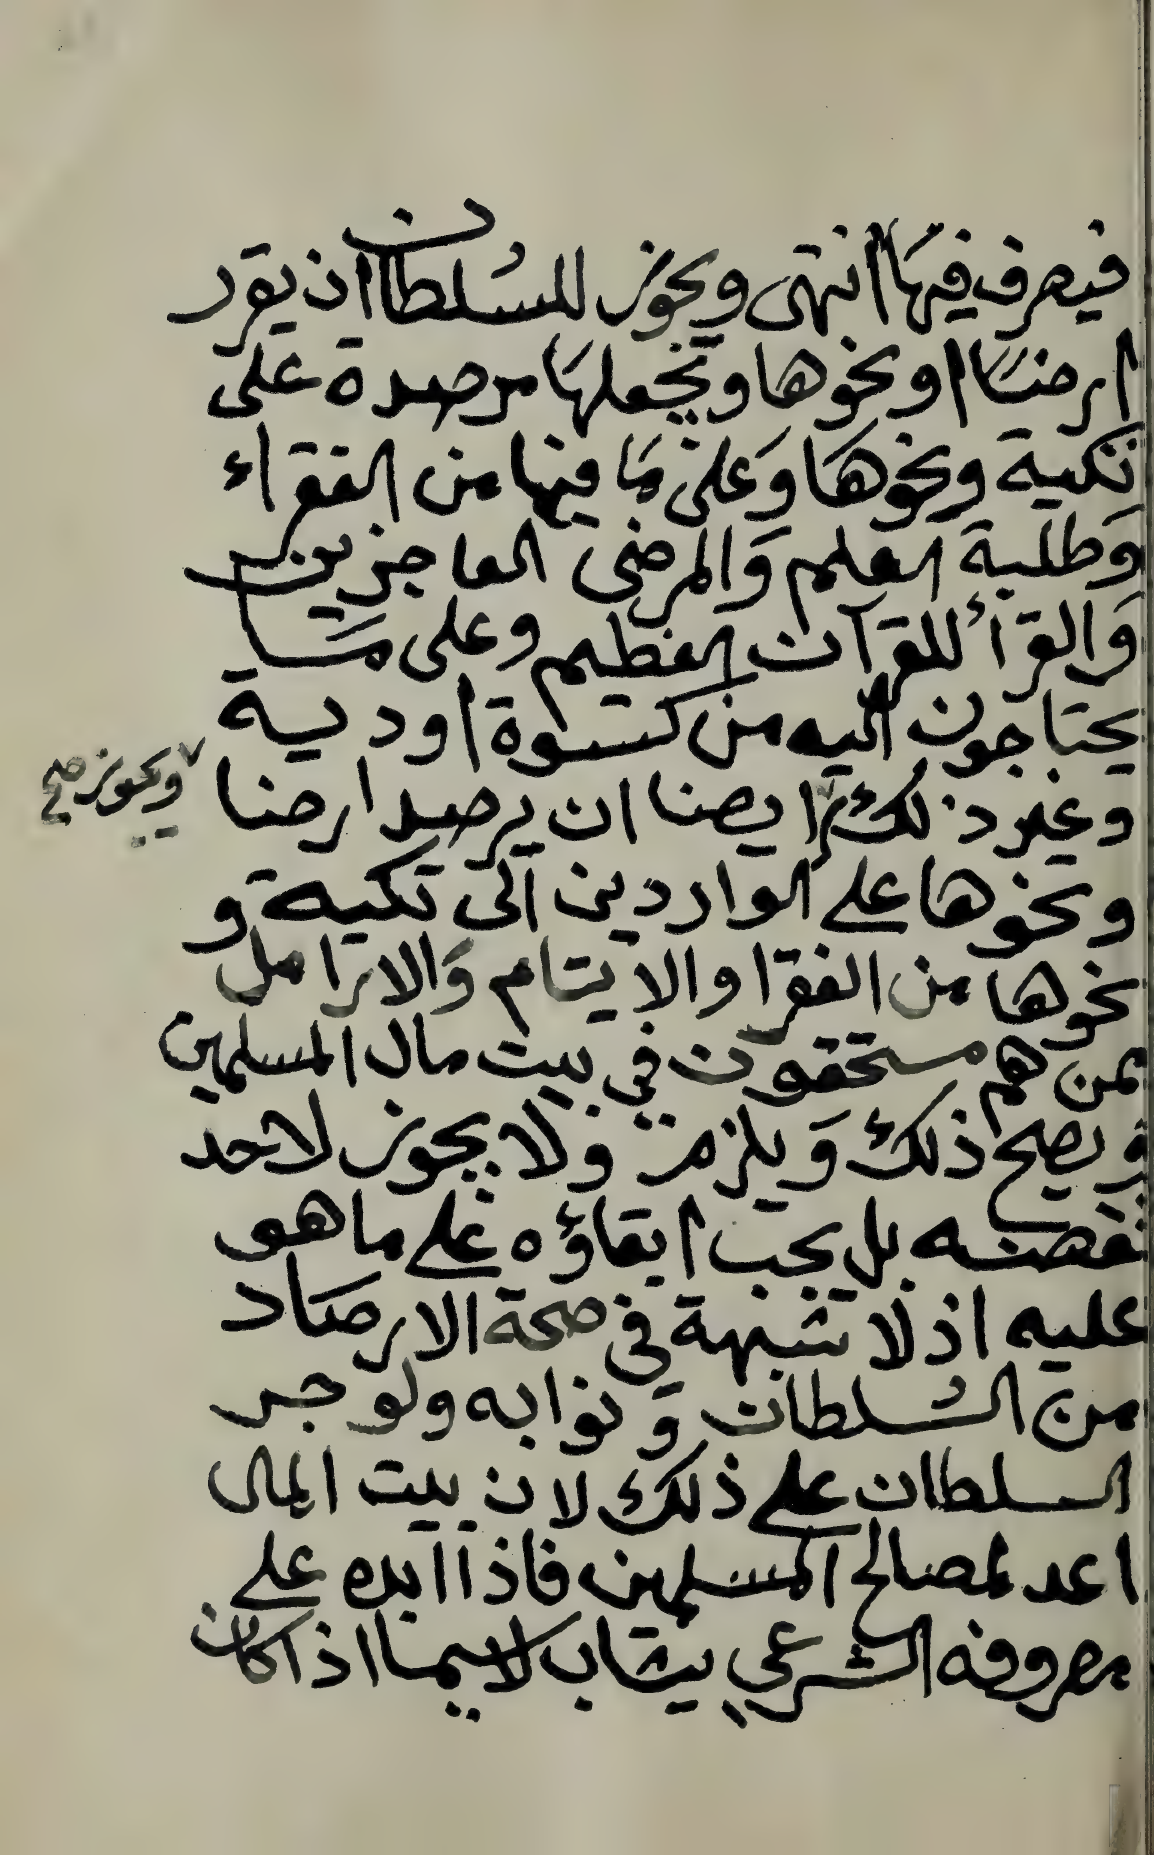 فيصرف فيها انتهى ويجوز للسلطان ان يقرر
ارضا او نحوها ويجعلها مرصدة على
تكية ونحوها وعلى ما فيها من الفقراء
وطلبة العلم والمرضى العاجزين
والقرأ للقرآن العظيم وعلى ما
يحتاجون اليه من كسوة اودية
وغير ذلك ايضا ان يرصد ارضا
ويجوز صح
ونحوها على الواردين الى تكية و
نحوها من الفقرا والايتام والارامل
ممن هم مستحقون في بيت مال المسلمين
ويصح ذلك ويلزم ولا يجوز لاحد
نقضه بل يجب ابقاؤه على ما هو
عليه اذ لا شبهة في صحة الارصاد
من السلطان ونوابه ولو جبر
السلطان على ذلك لان بيت المال
اعد لمصالح المسلمين فاذا ابده على
مصروفه الشرعي يثاب لاسيما اذا كان